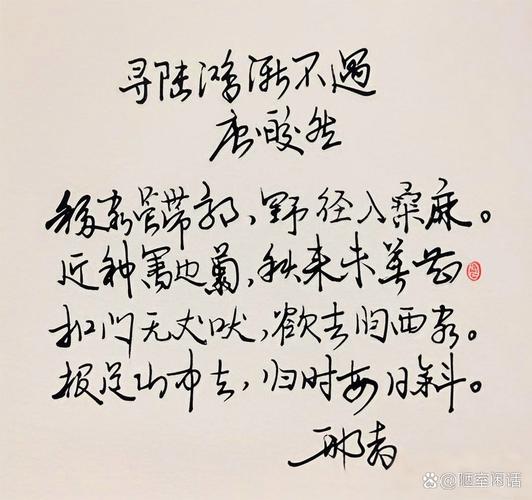 寻陆鸿渐不遇
唐皎然
移家虽带郭，野径入桑麻。
近种篱边菊，秋来未着花
扣门无犬吠，欲去问西家。
报是山中去，归时每日斜。
陋室闲话